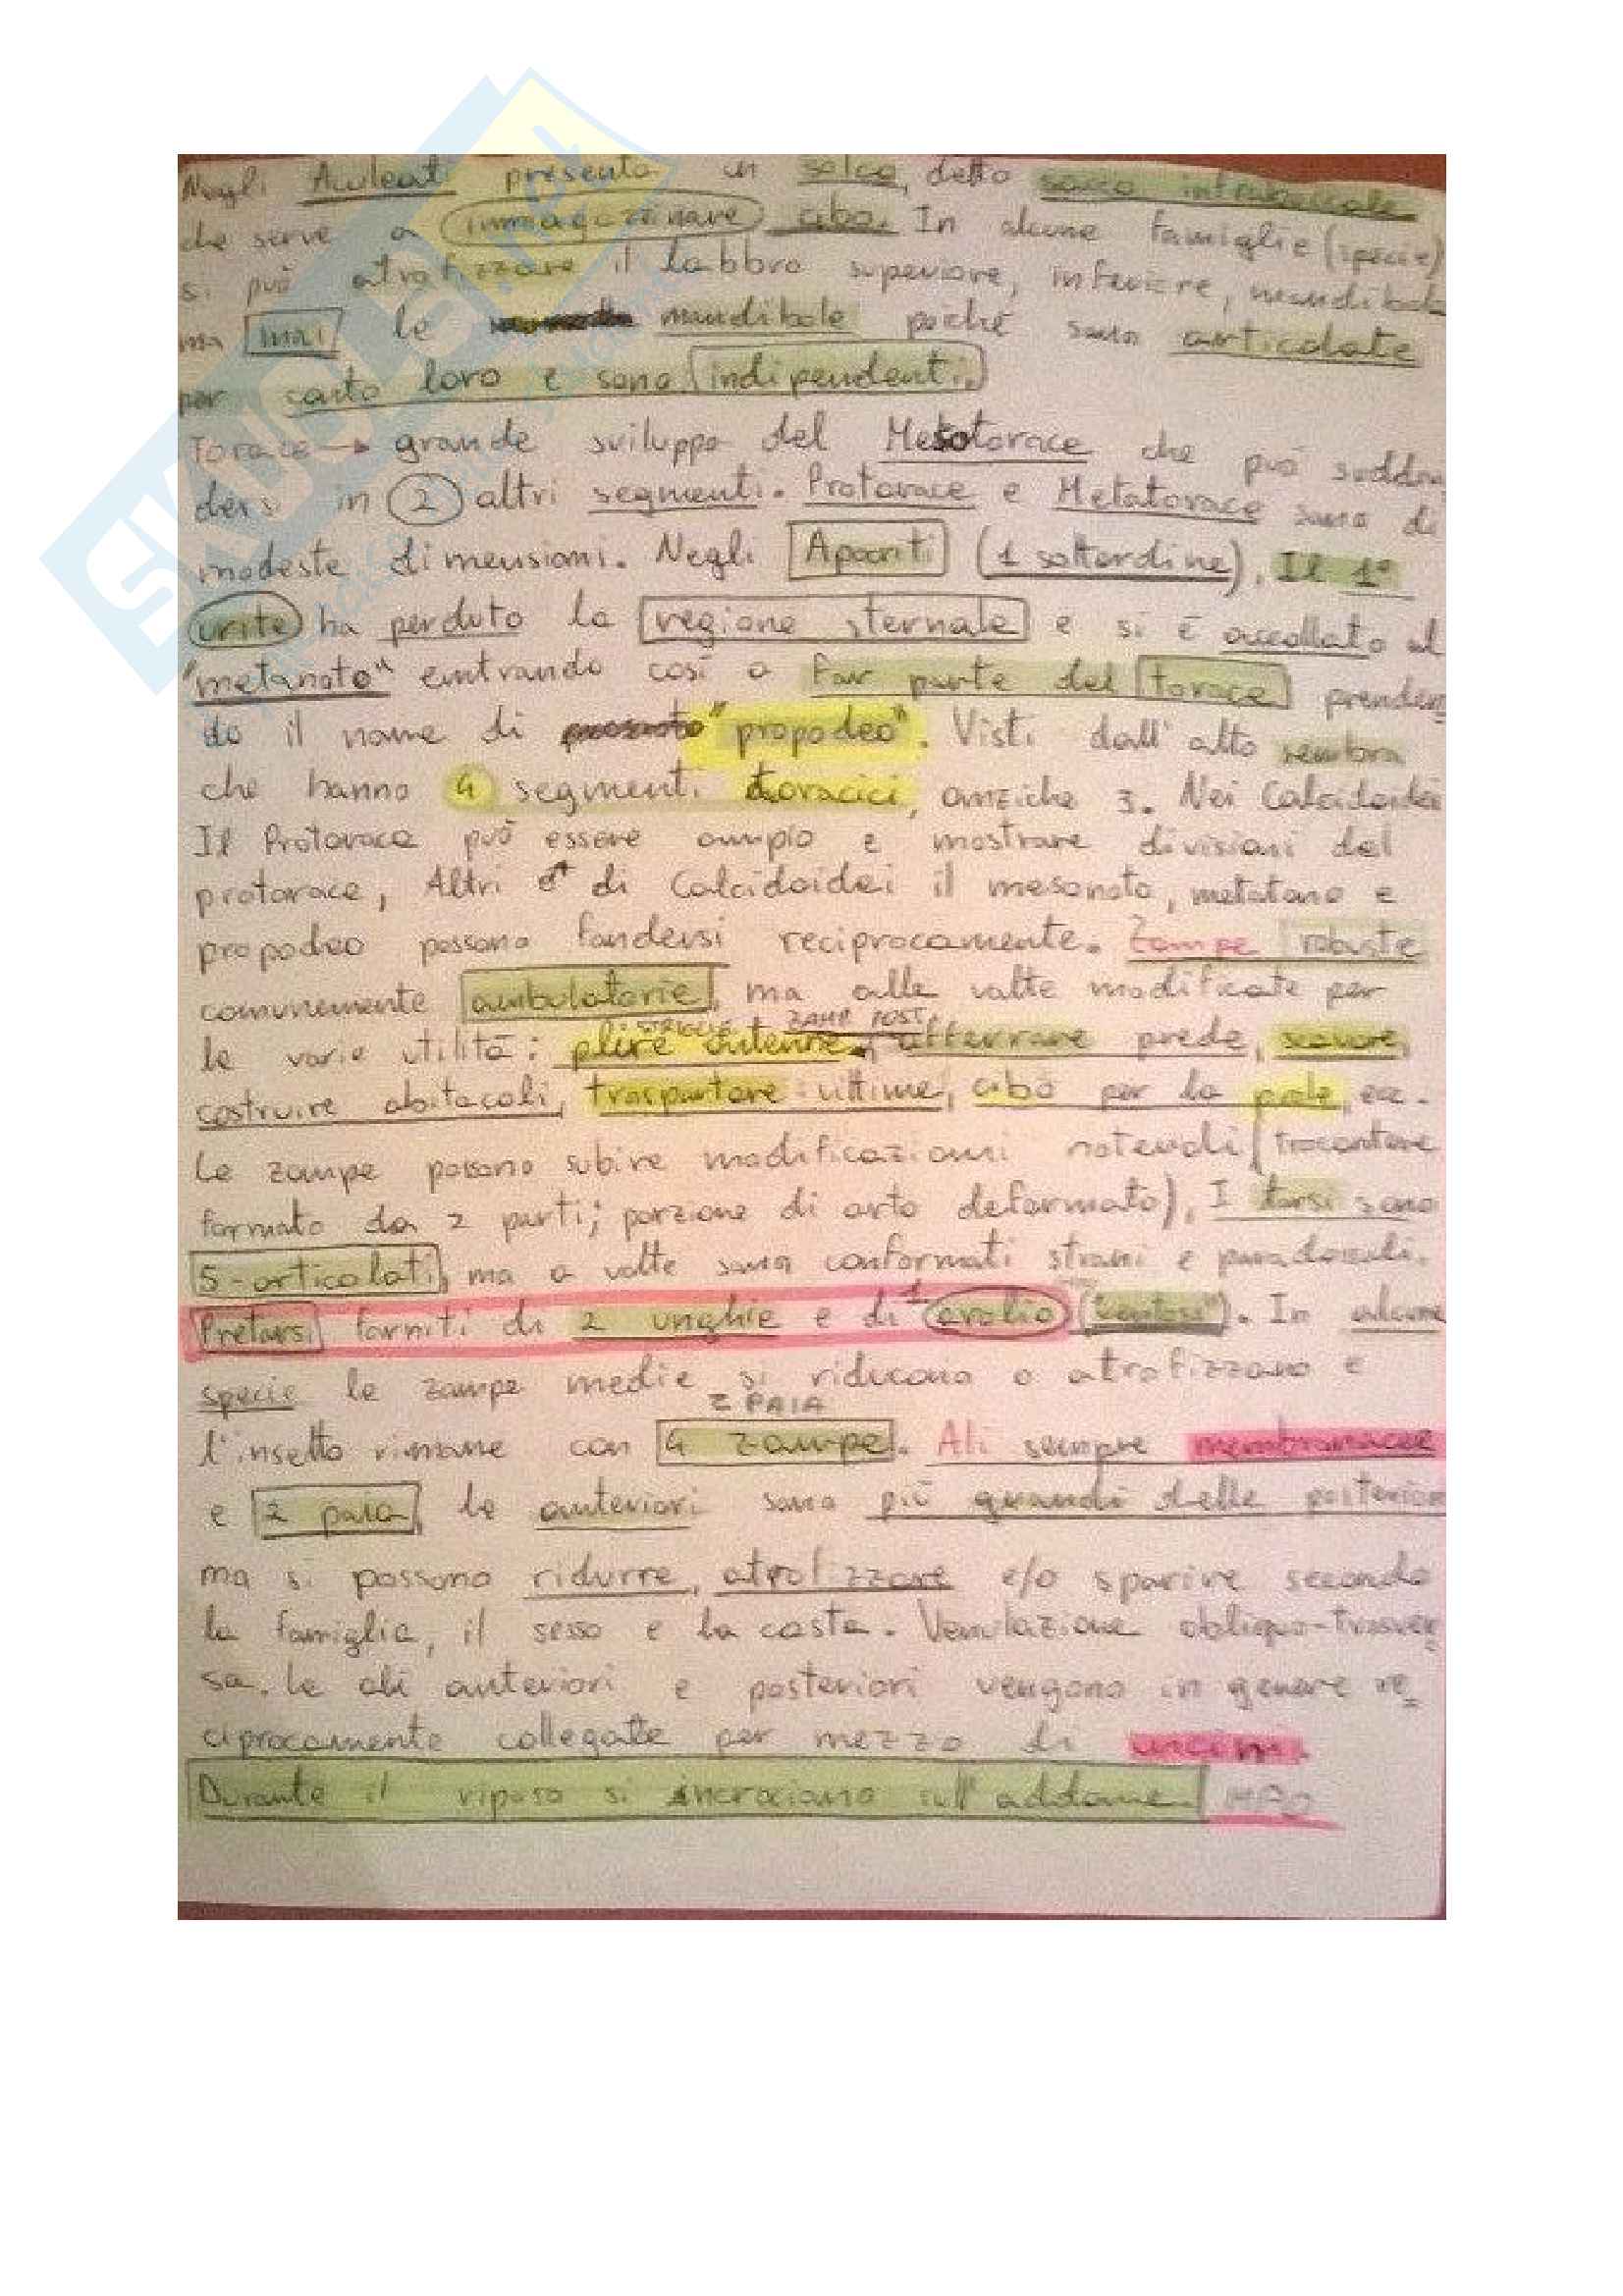 Negli Aculeati presenta un solco, detto sacco intraboccale
che serve a immagazzinare cibo. In alcune famiglie (specie)
si può atrofizzare il labbro superiore, inferiore, mandibole
ma mai le mandibole poiché sono articolate
per conto loro e sono indipendenti.
Torace → grande sviluppo del Mesotorace che può suddivi
dersi in 2 altri segmenti. Protorace e Metatorace sono di
modeste dimensioni. Negli Apocriti (1 sottordine), Il 1°
urite ha perduto la regione sternale e si è accollato al
"metanoto" entrando così a far parte del torace prenden
do il nome di "propodeo". Visti dall'alto sembra
che hanno 4 segmenti toracici, anziche 3. Nei Calcidoidei
Il Protorace può essere ampio e mostrare divisioni del
protorace, Altri ♂ di Calcidoidei il mesonoto, metatano e
propodeo possono fondersi reciprocamente. Zampe robuste
comunemente ambulatorie, ma alle volte modificate per
STRIGLIA ZAMP POST.
le varie utilità: pulire antenne, afferrare prede, scavare,
costruire abitacoli, trasportare vittime, cibo per la prole, ecc.
Le zampe possono subire modificazioni notevoli (trocantere
formato da 2 parti; porzione di arto deformato), I tarsi sono
5-articolati, ma a volte sono conformati strani e paradossali.
Pretarsi forniti di 2 unghie e di 1 arolio ("ventosa"). In alcune
specie le zampe medie si riducono o atrofizzano e
2 PAIA
l'insetto rimane con 4 zampe. Ali sempre membranacee
e 2 paia, le anteriori sono più grandi delle posteriori
ma si possono ridurre, atrofizzare e/o sparire secondo
la famiglia, il sesso e la casta. Venulazione obliquo-trasver
sa. Le ali anteriori e posteriori vengono in genere re
ciprocamente collegate per mezzo di uncini.
Durante il riposo si incrociano sull'addome.
SKUOLA.net